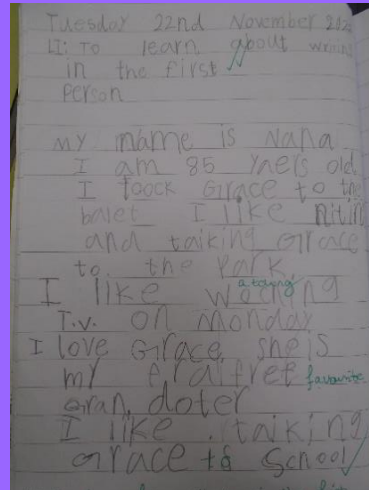 Tuesday 22nd November
LI: To learn about
in the first
Person
My name is Nana
I am 85 yaeis old
I toock Grace to the
balet I like nitin
and taiking Grace
to the Park
I like woching
T.v. on Monday
I love Grace she is
my favourite
Gran doter
I like . taiking
Grace to School